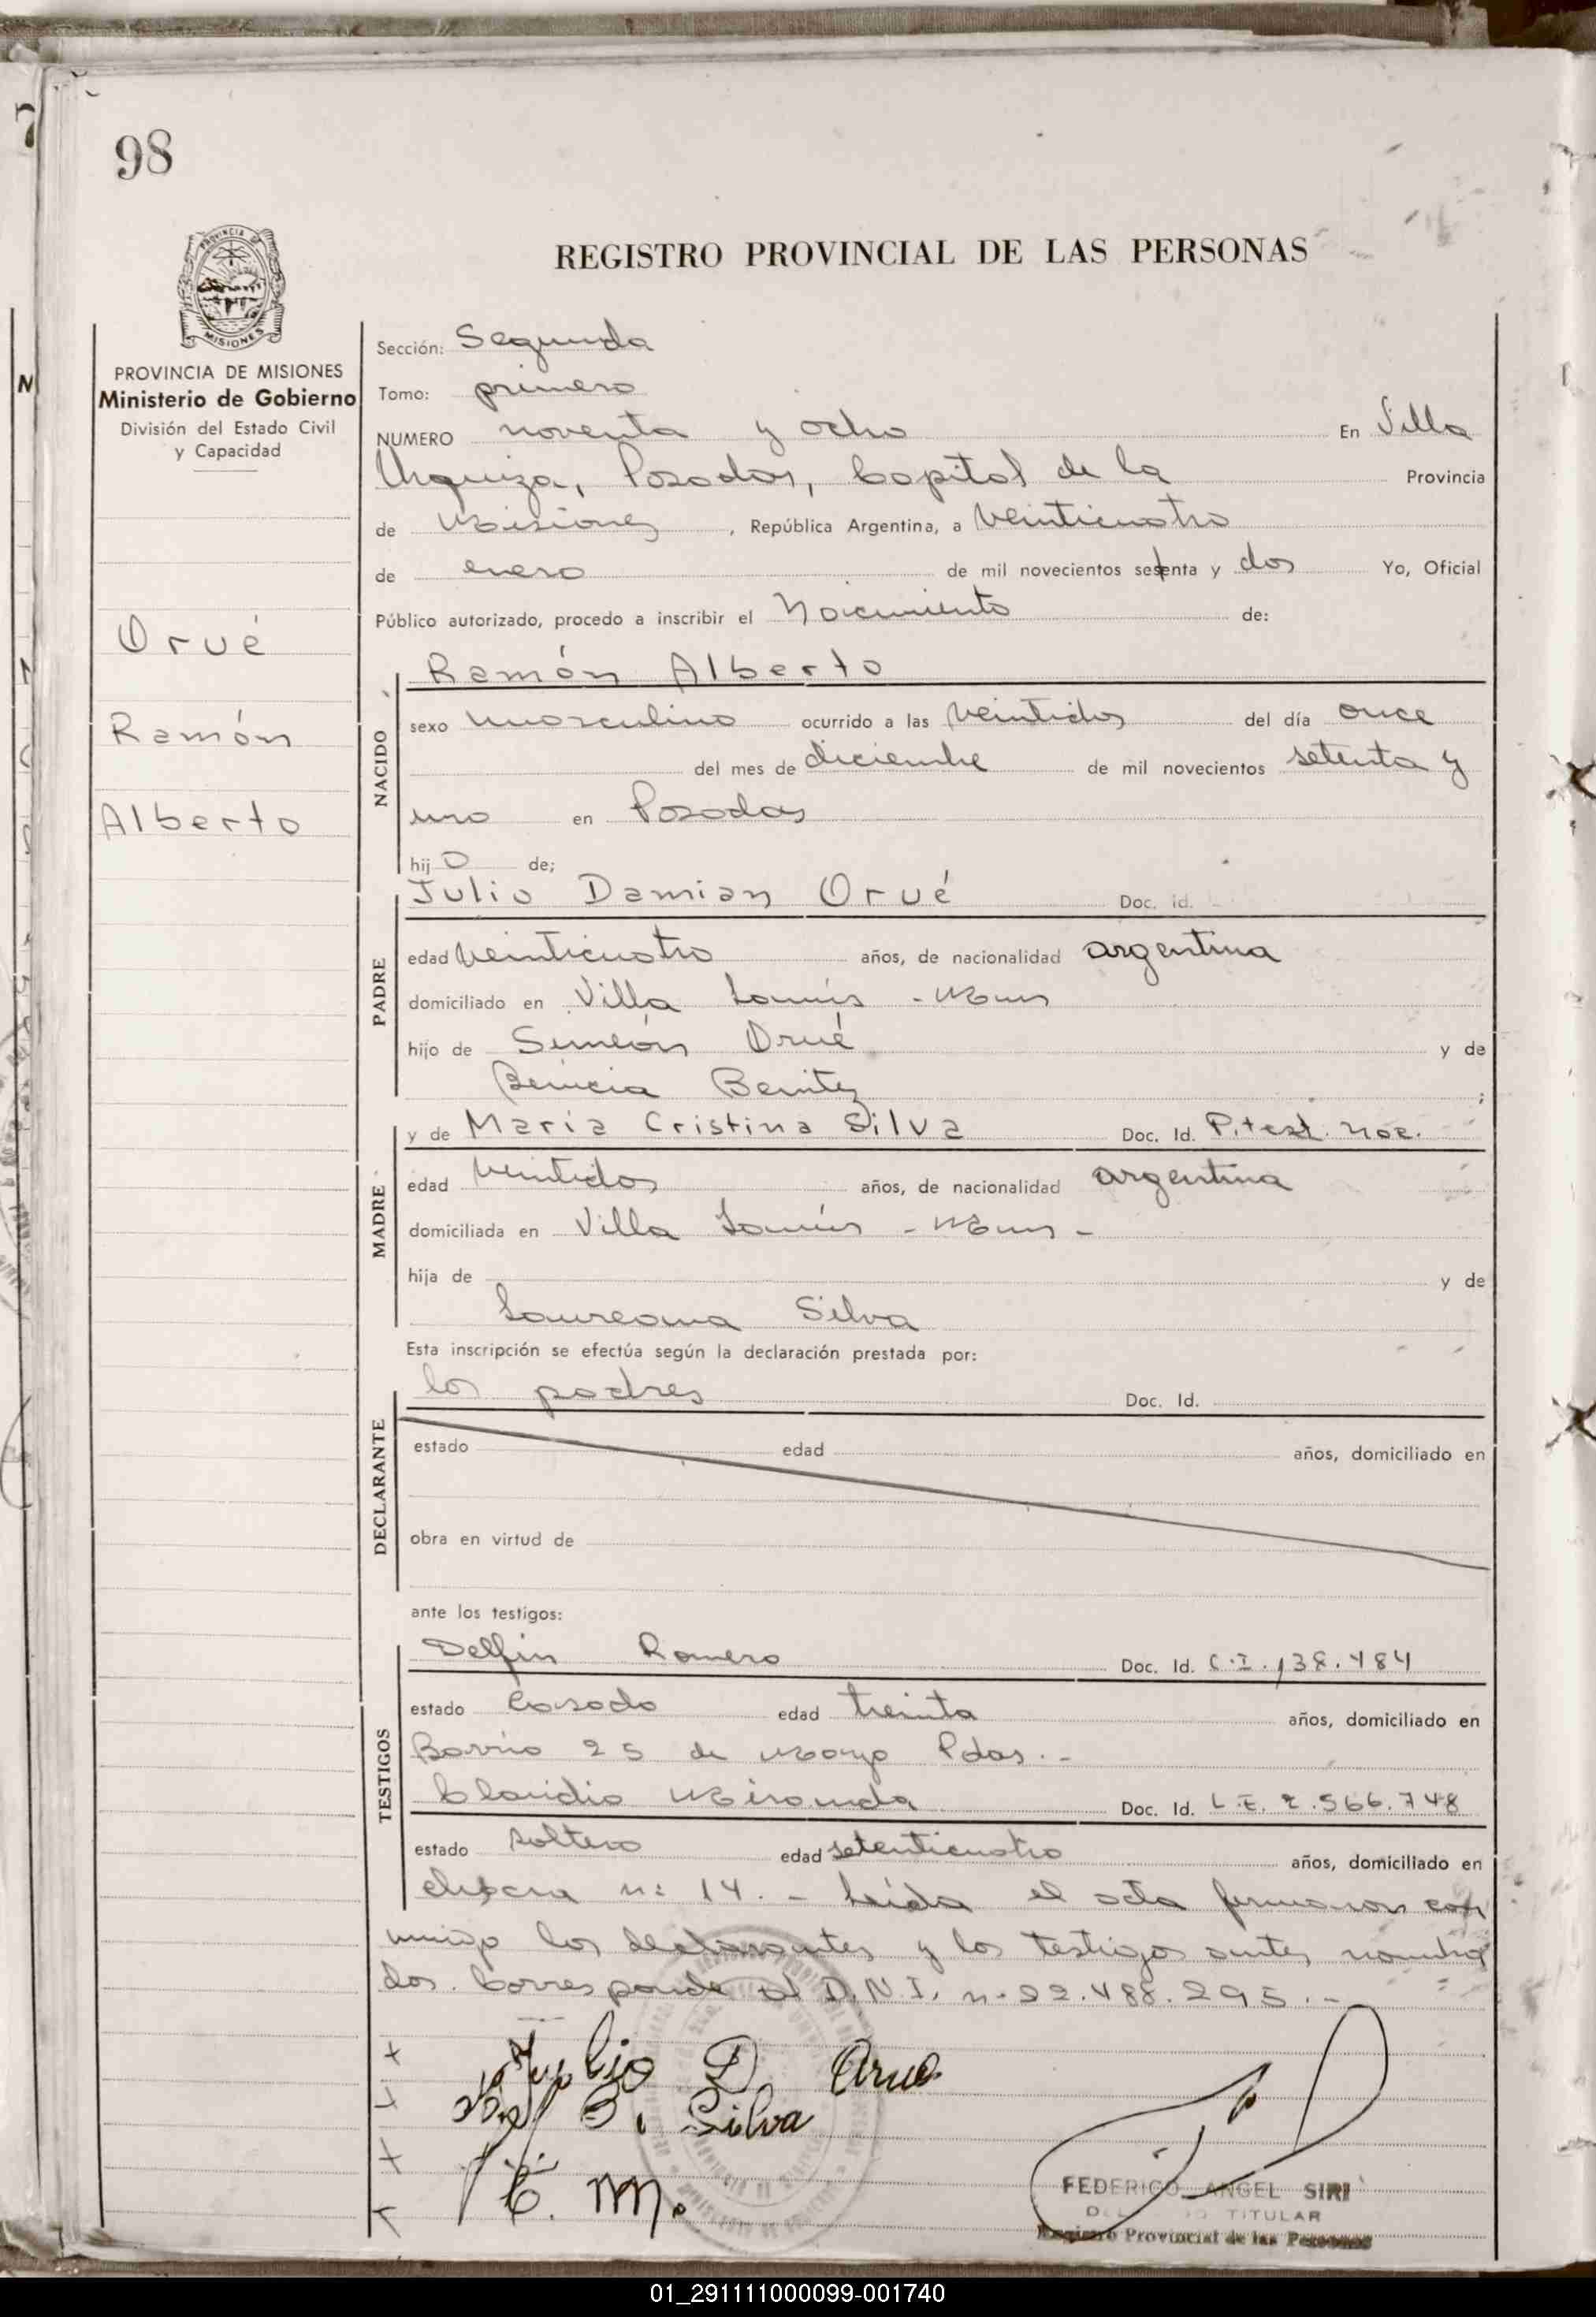 98
REGISTRO PROVINCIAL DE LAS PERSONAS
PROVINCIA DE MISIONES
Ministerio de Gobierno
División del Estado Civil
y Capacidad
Orué
Ramón
Alberto
Sección: Segunda
Tomo: primero
NUMERO noventa y ocho En Villa
Urquiza, Posadas, Capital de la Provincia
de Misiones, República Argentina, a veinticuatro
de enero de mil novecientos setenta y dos Yo, Oficial
Público autorizado, procedo a inscribir el Nacimiento de:
NACIDO
Ramón Alberto
sexo masculino ocurrido a las veintidos del día once
del mes de diciembre de mil novecientos setenta y
uno en Posadas
hijo de;
PADRE
Julio Damian Orué Doc. id.
edad veinticuatro años, de nacionalidad argentina
domiciliado en Villa Lanús - Mnes
hijo de Simeón Orué y de
Benicia Benitez ;
MADRE
y de María Cristina Silva Doc. Id. P. test. nac.
edad veintidos años, de nacionalidad argentina
domiciliada en Villa Lanús - Mnes -
hija de y de
Laureana Silva
Esta inscripción se efectúa según la declaración prestada por:
DECLARANTE
los padres Doc. Id.
estado edad años, domiciliado en
obra en virtud de
ante los testigos:
TESTIGOS
Delfin Romero Doc. Id. C.I. 138.484
estado Casado edad treinta años, domiciliado en
Barrio 25 de Mayo Pdas. -
Claudio Miranda Doc. Id. L.E. 2.566.748
estado soltero edad setenticuatro años, domiciliado en
chacra n: 14. - Leída el acta firmaron con
migo los declarantes y los testigos antes nombra
dos. Corresponde al D.N.I. n. 22.488.295. -
Julio D. Orue
C. Silva
C. M.
FEDERICO ANGEL SIRI
TITULAR
Registro Provincial de las Personas
01_291111000099-001740